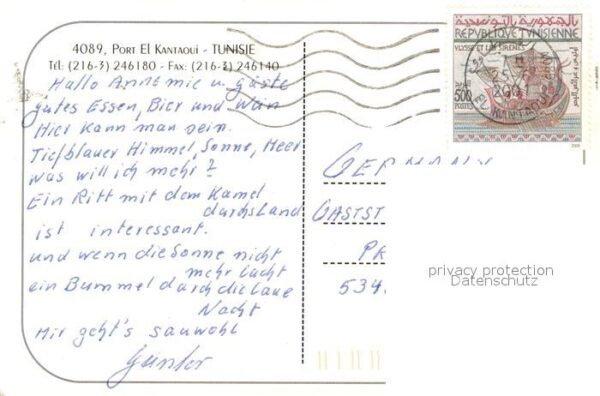 4089, Port El Kantaoui - TUNISIE
Tél: (216-3) 246180 - Fax: (216-3) 246140
Hallo Annemie u. Gäste
gutes Essen, Bier und Wein
Hier kann man sein.
Tiefblauer Himmel, Sonne, Meer
was will ich mehr?
Ein Ritt mit dem Kamel
durchs Land
ist interessant.
und wenn die Sonne nicht
mehr lacht
ein Bummel durch die laue
Nacht
Mir geht's sauwohl
Günter
الجمهورية التونسية
REPUBLIQUE TUNISIENNE
ULYSSE ET LES SIRENES
500
2001
KANTAOUI
GERMANY
GASTST
534
privacy protection
Datenschutz